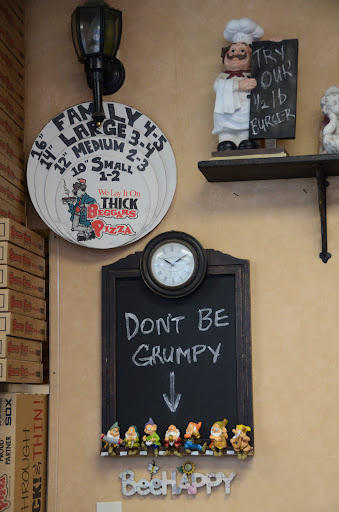 FAMILY 4-5
16" LARGE 3-4
14" MEDIUM 2-3
12" SMALL
10" 1-2
We Lay It On
THICK
BEGGARS
PIZZA
TRY
OUR
1/2 lb
BURGER
DONT BE
GRUMPY
BeeHAPPY
PROUD
PARTNER
SOX
THROUGH
THICK!
THIN!